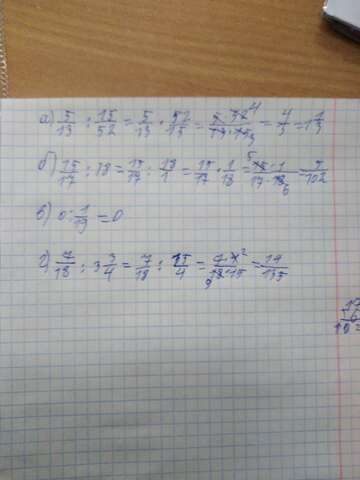 а) 5/13 : 15/52 = 5/13 · 52/15 = 5·52 4/13·15 3 = 4/3 = 1 1/3
б) 15/17 : 18 = 15/17 : 18/1 = 15/17 · 1/18 = 5 15·1/17·18 6 = 5/102
в) 0 : 1/19 = 0
г) 7/18 : 3 3/4 = 7/18 : 15/4 = 7·4 2/9 18·15 = 14/135
17
6
102